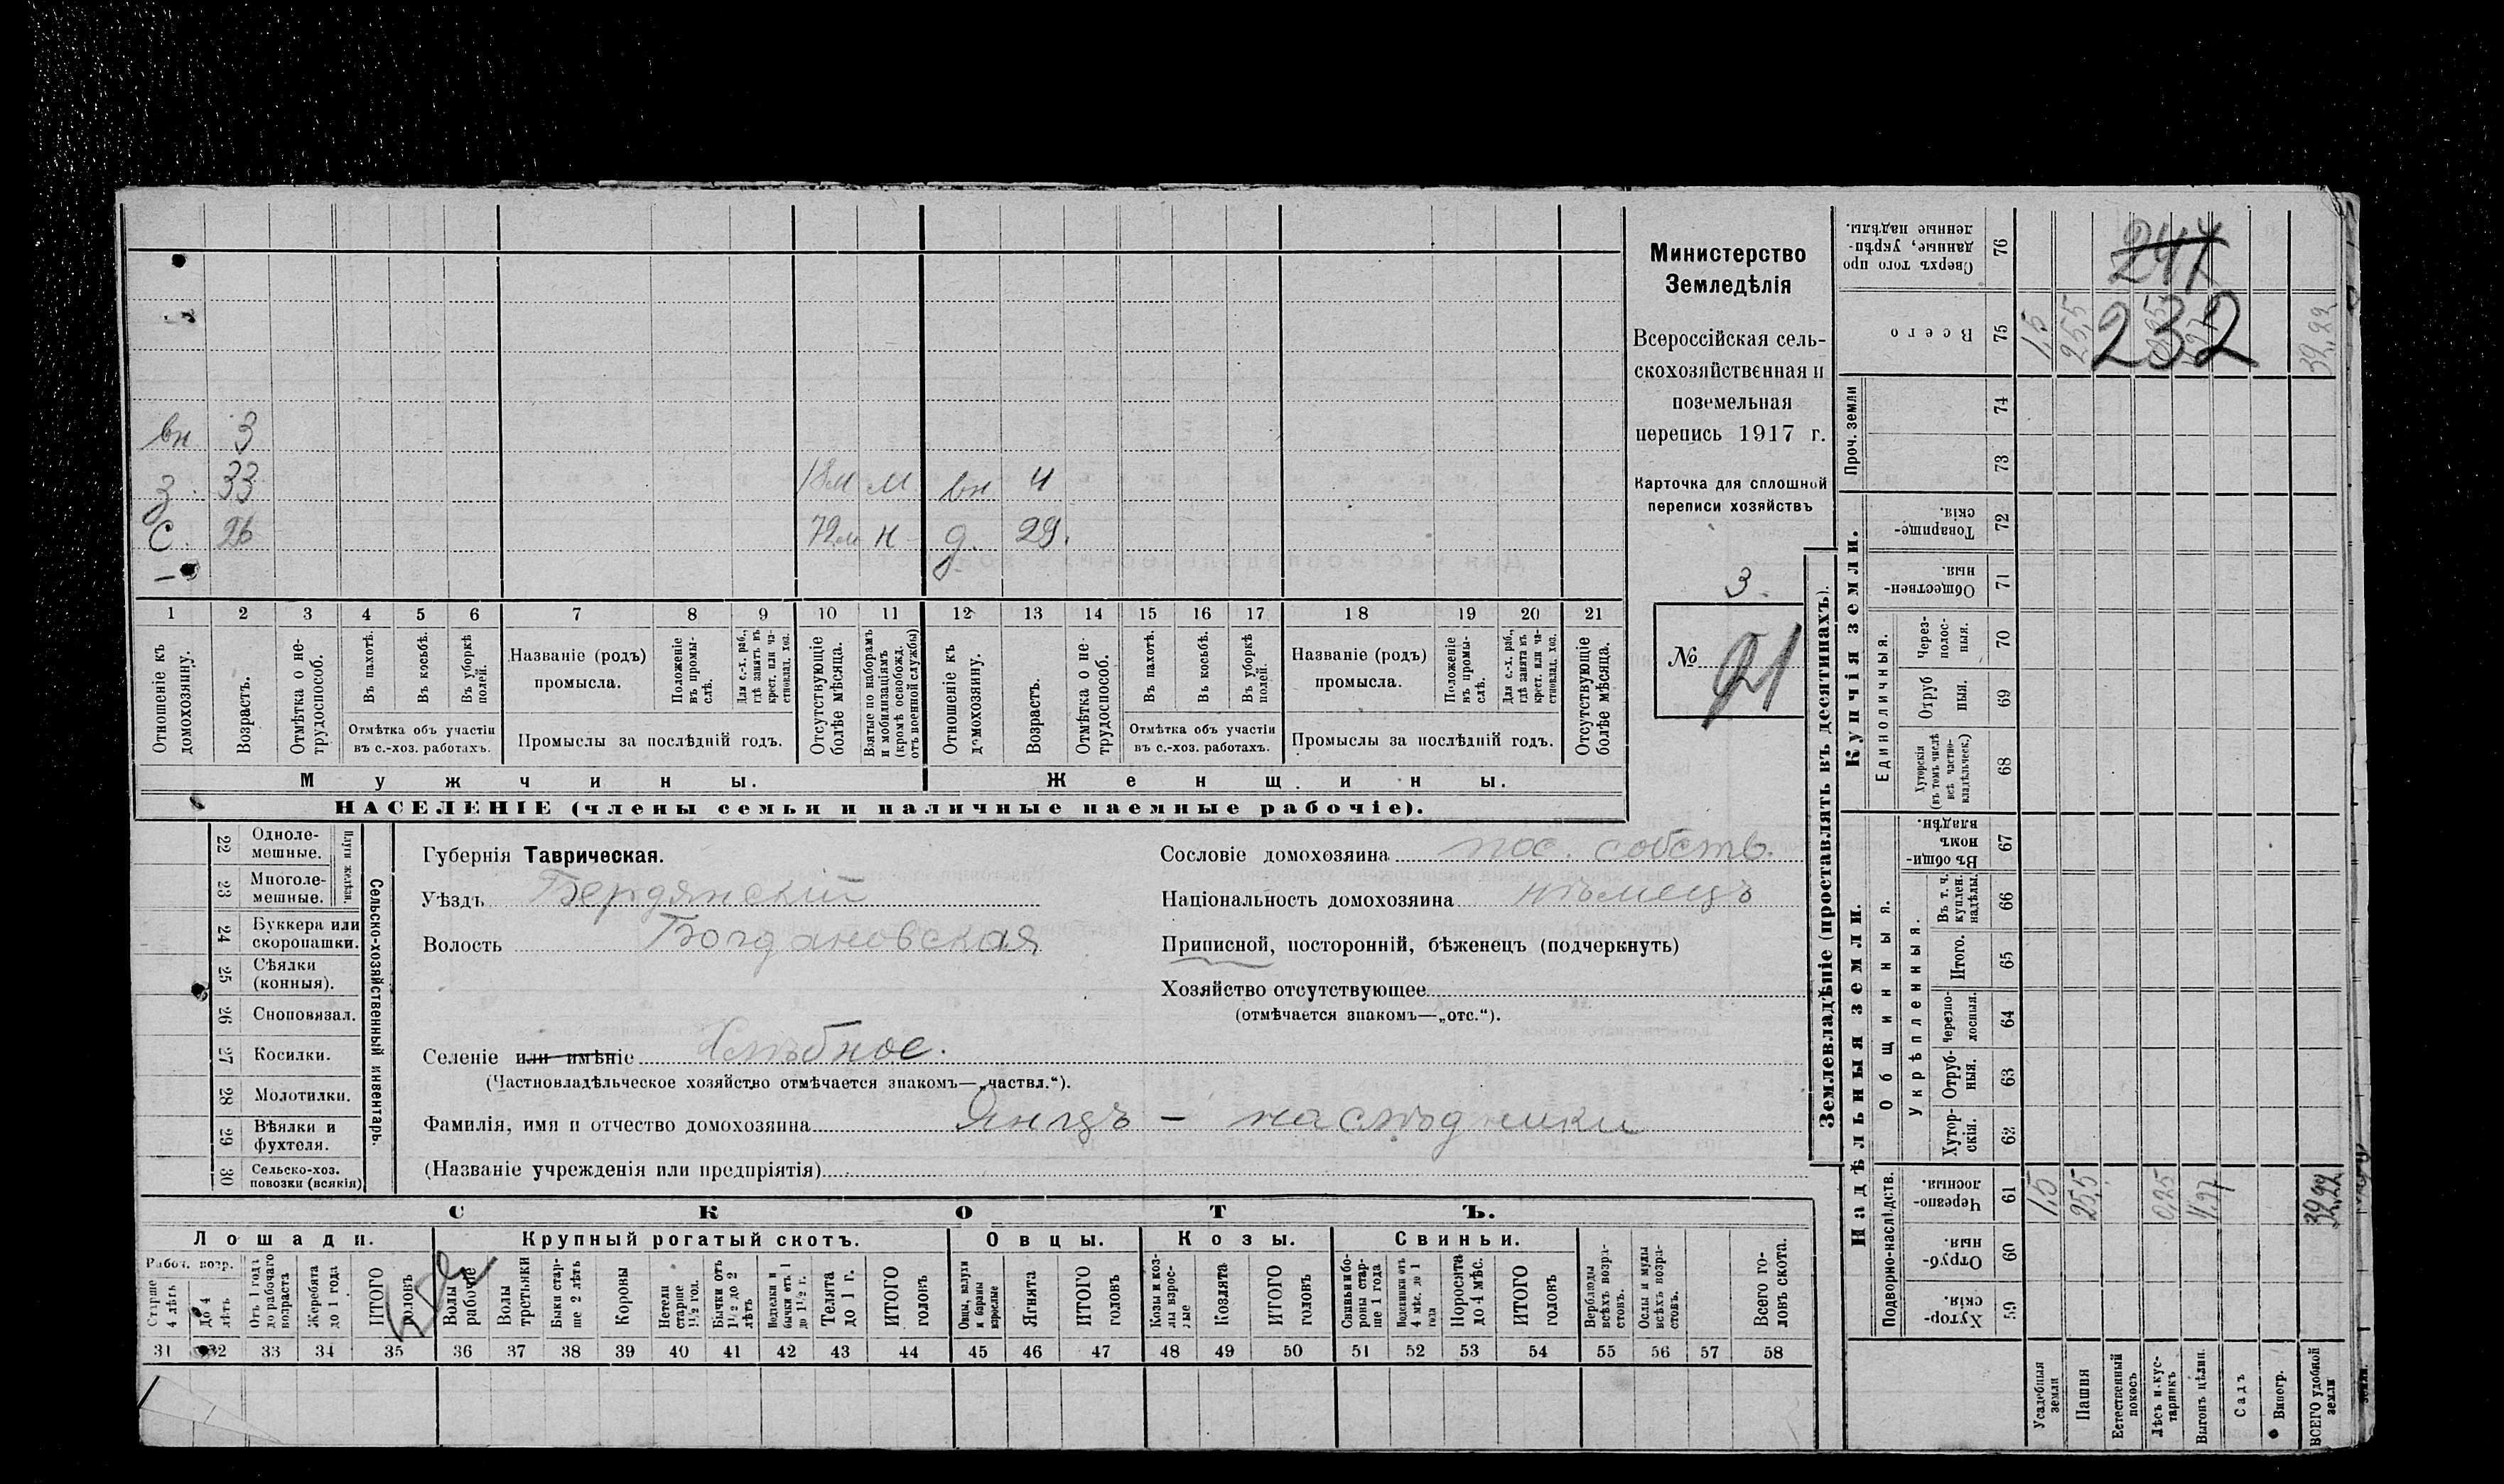 247
232
вн 3
з. 33 18м м вн 4
с. 26 72м н д. 29.
1 2 3 4 5 6 7 8 9 10 11 12 13 14 15 16 17 18 19 20 21
Отношеніе къ домохозяину.
Возрастъ.
Отмѣтка о не-трудоспособ.
Въ пахотѣ.
Въ косьбѣ.
Въ уборкѣ полей.
Отмѣтка объ участіи
въ с.-хоз. работахъ.
Названіе (родъ)
промысла.
Положеніе въ промы-слѣ.
Для с.-х. раб., гдѣ занятъ въ крест. или ча-стновлад. хоз.
Промыслы за послѣдній годъ.
Отсутствующіе болѣе мѣсяца.
Взятые по наборамъ и мобилизаціямъ (кромѣ освобожд. отъ военной службы)
Отношеніе къ домохозяину.
Возрастъ.
Отмѣтка о не-трудоспособ.
Въ пахотѣ.
Въ косьбѣ.
Въ уборкѣ полей.
Отмѣтка объ участіи
въ с.-хоз. работахъ.
Названіе (родъ)
промысла.
Положеніе въ промы-слѣ.
Для с.-х. раб., гдѣ занята въ крест. или ча-стновлад. хоз.
Промыслы за послѣдній годъ.
Отсутствующіе болѣе мѣсяца.
Мужчины. Женщины.
НАСЕЛЕНІЕ (члены семьи и наличные наемные рабочіе).
Министерство
Земледѣлія
Всероссійская сель-
скохозяйственная и
поземельная
перепись 1917 г.
Карточка для сплошной
переписи хозяйствъ
3.
№ 21
Сельско-хозяйственный инвентарь.
Плуги желѣзн.
22 Одноле-мешные.
23 Многоле-мешные.
24 Буккера или скоропашки.
25 Сѣялки (конныя).
26 Сноповязал.
27 Косилки.
28 Молотилки.
29 Вѣялки и фухтеля.
30 Сельско-хоз. повозки (всякія)
Губернія Таврическая.
Уѣздъ Бердянскій
Волость Богдановская
Селеніе или имѣніе
(Частновладѣльческое хозяйство отмѣчается знакомъ—„частвл.“).
Фамилія, имя и отчество домохозяина Янцъ – наслѣдники
(Названіе учрежденія или предпріятія)
Сословіе домохозяина пос. собств.
Національность домохозяина нѣмецъ
Приписной, посторонній, бѣженецъ (подчеркнуть)
Хозяйство отсутствующее
(отмѣчается знакомъ—„отс.“).
СКОТЪ.
Лошади. Крупный рогатый скотъ. Овцы. Козы. Свиньи.
Рабоч. возр.
Старше 4 лѣтъ
До 4 лѣтъ
Отъ 1 года до рабочаго возраста
Жеребята до 1 года
ИТОГО головъ
Волы рабочіе
Волы гостьяки
Быки стар-ше 2 лѣтъ
Коровы
Нетели старше 1½ год.
Бычки отъ 1½ до 2 лѣтъ
Подтелки и бычки отъ 1 до 1½ г.
Телята до 1 г.
ИТОГО головъ
Овцы, валухи и бараны взрослые
Ягнята
ИТОГО головъ
Козы и коз-лы взрос-лые
Козлята
ИТОГО головъ
Свиньи и бо-роны стар-ше 1 года
Подсвинки отъ 4 мѣс. до 1 года
Поросята до 4 мѣс.
ИТОГО головъ
Верблюды всѣхъ возра-стовъ.
Ослы и мулы всѣхъ возра-стовъ.
Всего го-ловъ скота.
31 32 33 34 35 36 37 38 39 40 41 42 43 44 45 46 47 48 49 50 51 52 53 54 55 56 57 58
Землевладѣніе (проставлять въ десятинахъ).
Надѣльныя земли.
Подворно-наслѣдств.
59 Хутор-скія.
60 Отруб-ныя.
61 Черезпо-лосныя. 1,5 25,5 0,25 39,22
Общинныя.
Укрѣпленныя.
62 Хутор-скія.
63 Отруб-ныя.
64 Черезпо-лосныя.
65 Итого.
66 Въ т. ч. куплен. надѣлы.
67 Въ общи-номъ владѣн.
Купчія земли.
Единоличныя.
68 Хуторскія (въ томъ числѣ всѣ частно-владѣльческ.)
69 Отруб ныя.
70 Через-полос-ныя.
71 Обществен-ныя.
72 Товарище-скія.
Проч. земли
73
74
75 Всего 1,5 25,5 39,22
76 Сверхъ того про данные, укрѣп-ленные надѣлы.
Усадебныя земли
Пашня
Естественный покосъ
Лѣсъ и кус-тарникъ
Выгонъ цѣлин.
Садъ
Виногр.
ВСЕГО удобной земли